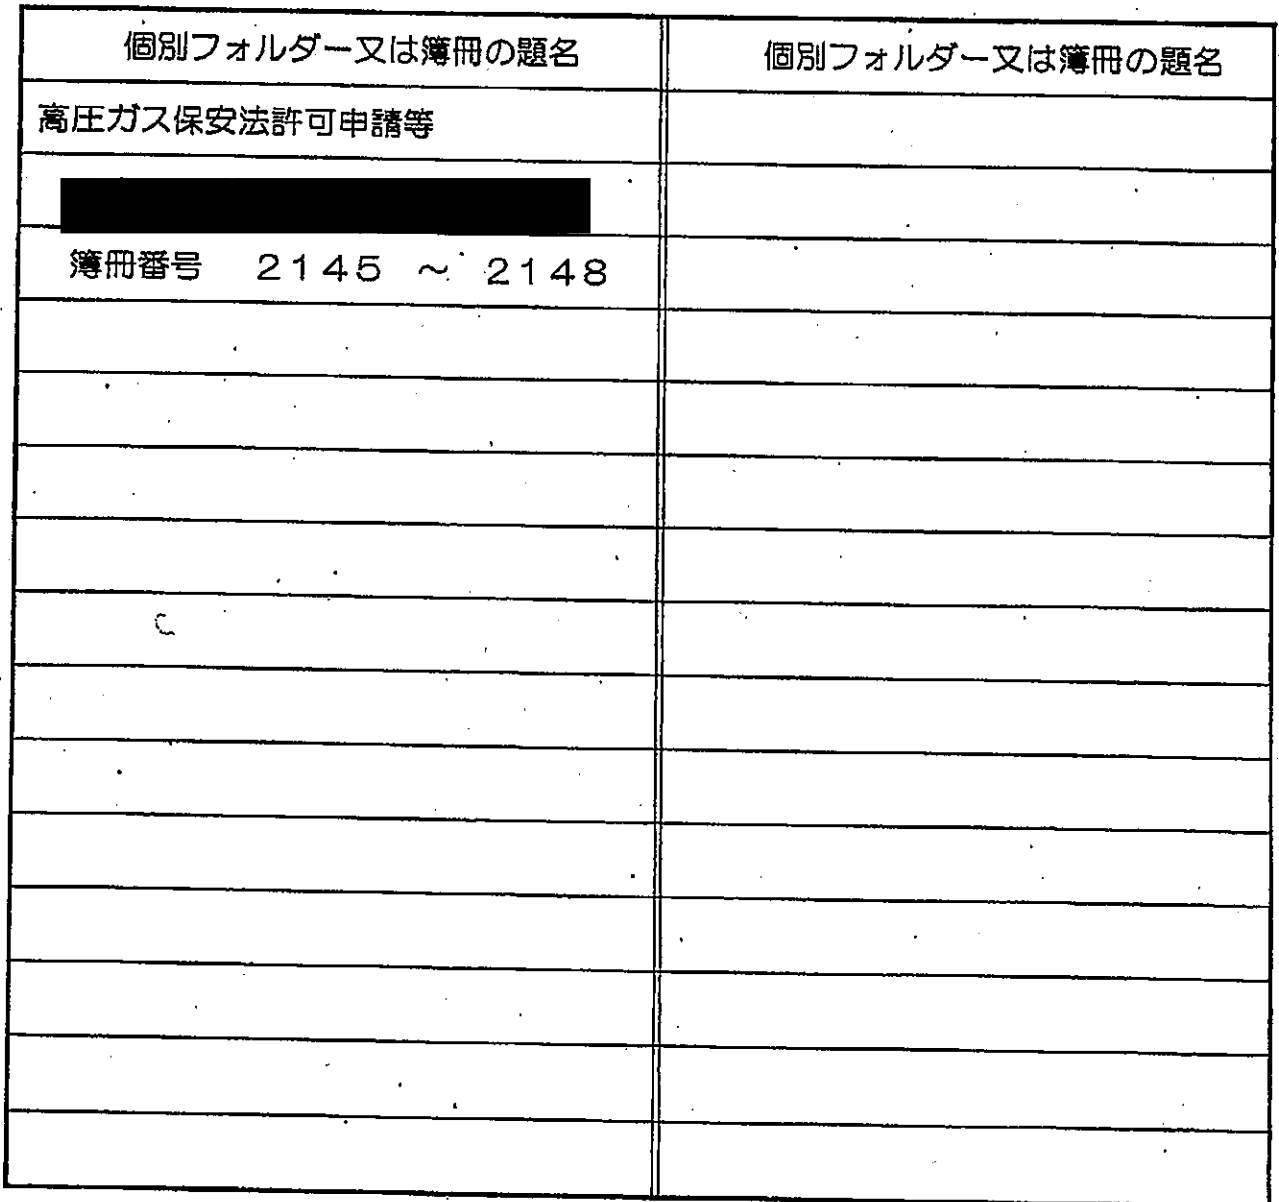 個別フォルダー又は簿冊の題名
個別フォルダー又は簿冊の題名
高圧ガス保安法許可申請等
簿冊番号　2145 ～ 2148